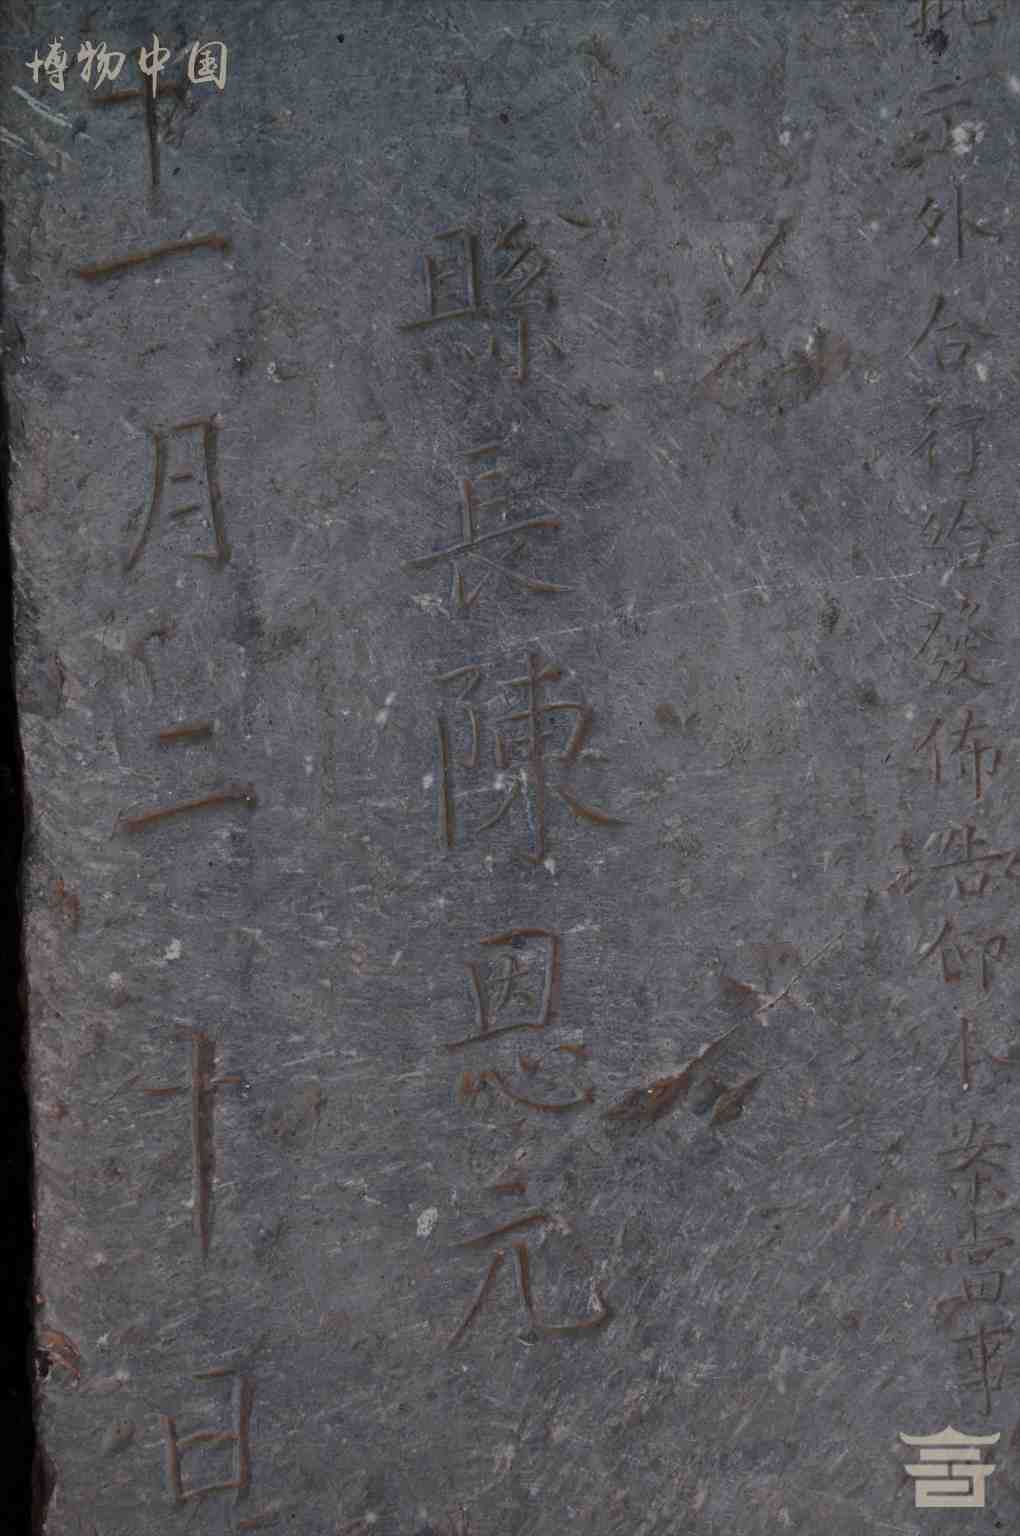 博物中国
批示外合行給發佈告仰卜案當事
縣長陳恩元
十一月二十日